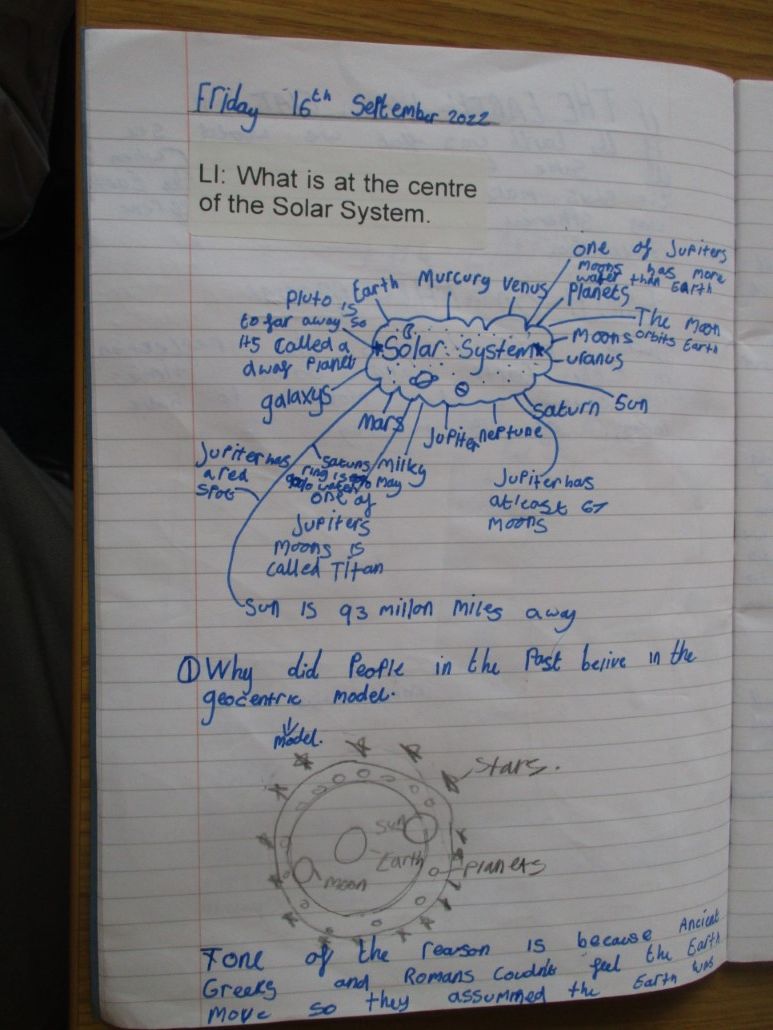 Friday 16th September 2022
LI: What is at the centre
of the Solar System.
one of Jupiters
moons has more
water than Earth
Earth
Murcury
Venus
Planets
Pluto is
to far away so
its called a
dwaf Planet
The Moon
orbits Earth
Moons
Solar System
uranus
galaxys
Sun
Saturn
Mars
Jupiter
neptune
Jupiter has
a red
spot
Saturns
ring is
water
milky
may
one of
Jupiters
moons is
called Titan
Jupiter has
at least 67
moons
Sun is 93 millon miles away
① Why did People in the Past belive in the
geocentric model.
model.
Stars.
Sun
Earth
Planets
moon
one of the reason is because Ancient
Greeks and Romans couldn't feel the Earth
move so they assummed the Earth was